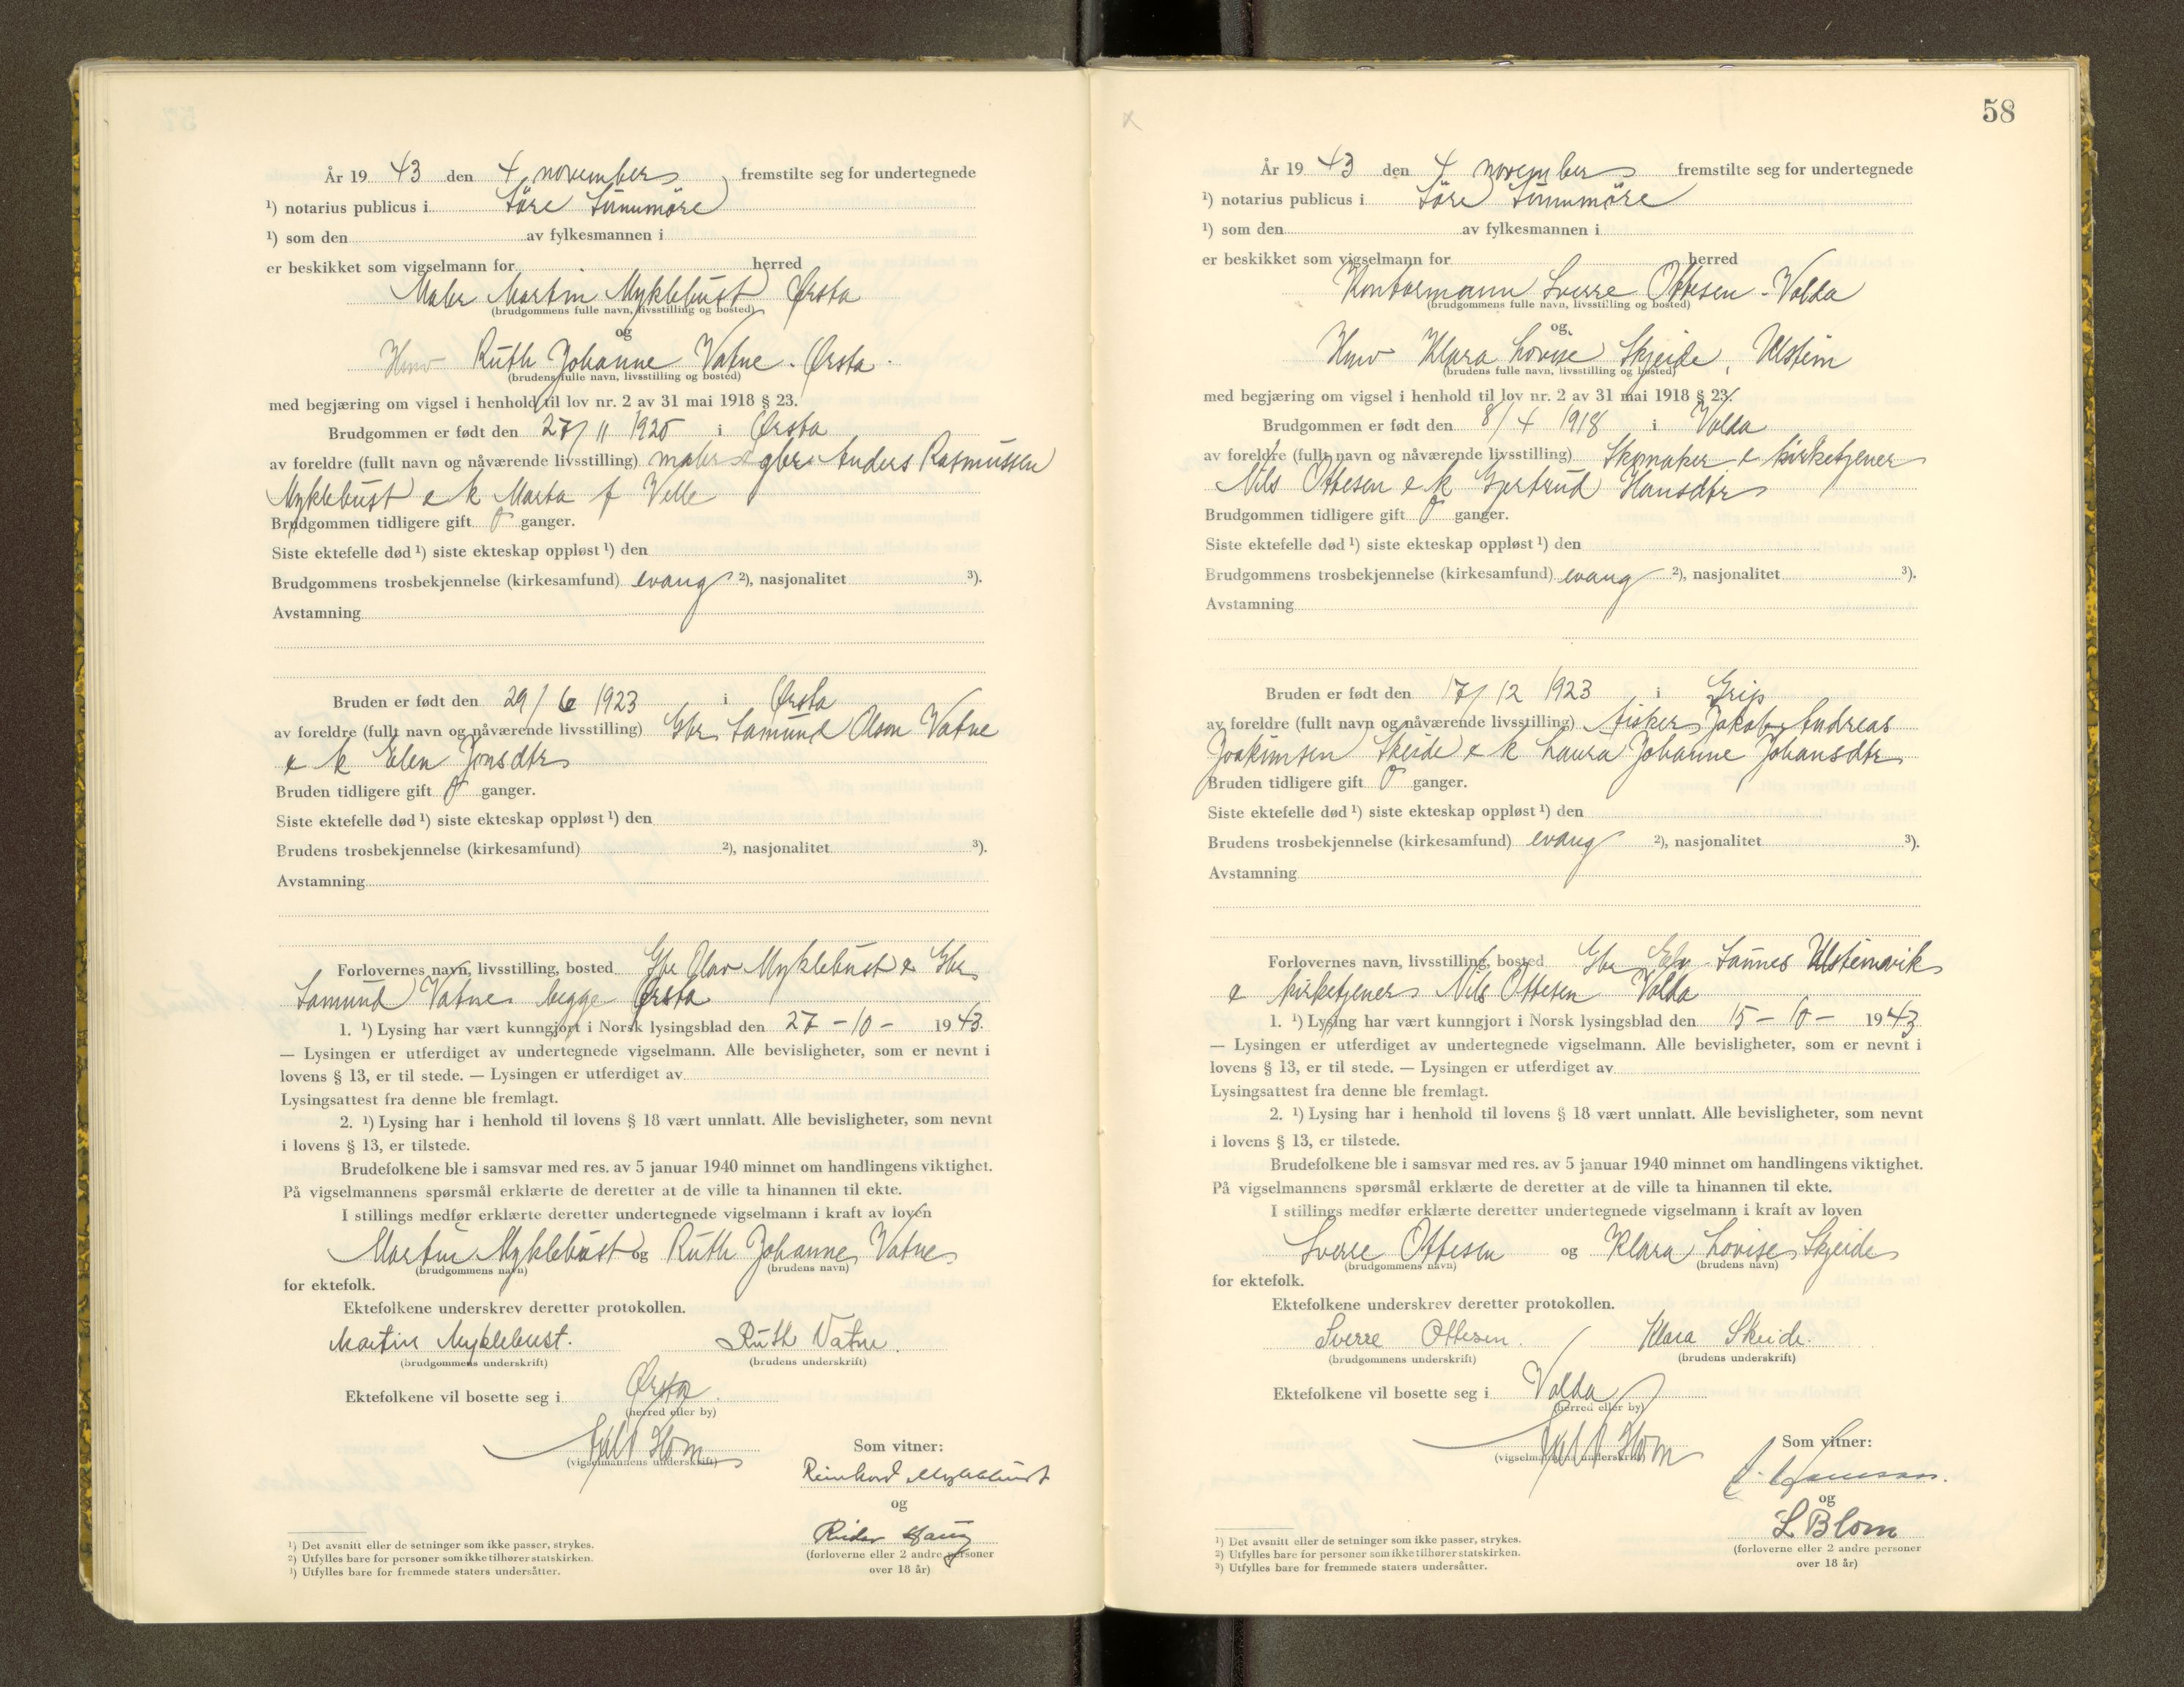 År 19 43 den 4 november fremstilte seg for undertegnede
¹) notarius publicus i Söre Sunnmöre
¹) som den av fylkesmannen i
er beskikket som vigselmann for herred
Maler Martin Myklebust Ørsta
(brudgommens fulle navn, livsstilling og bosted)
og
Hmv Ruth Johanne Vatne - Ørsta
(brudens fulle navn, livsstilling og bosted)
med begjæring om vigsel i henhold til lov nr. 2 av 31 mai 1918 § 23.
Brudgommen er født den 27/11 1920 i Ørsta
av foreldre (fullt navn og nåværende livsstilling) maler gbr Anders Rasmussen
Myklebust e k Marta f Velle
Brudgommen tidligere gift 0 ganger.
Siste ektefelle død ¹) siste ekteskap oppløst ¹) den
Brudgommens trosbekjennelse (kirkesamfund) evang ²), nasjonalitet ³).
Avstamning
Bruden er født den 29/6 1923 i Ørsta
av foreldre (fullt navn og nåværende livsstilling) Gbr Samund Olson Vatne
e k Elen Jonsdtr
Bruden tidligere gift 0 ganger.
Siste ektefelle død ¹) siste ekteskap oppløst ¹) den
Brudens trosbekjennelse (kirkesamfund) ²), nasjonalitet ³).
Avstamning
Forlovernes navn, livsstilling, bosted Gbr Olav Myklebust e Gbr
Samund Vatne begge Ørsta
1. ¹) Lysing har vært kunngjort i Norsk lysingsblad den 27 - 10 - 1943.
— Lysingen er utferdiget av undertegnede vigselmann. Alle bevisligheter, som er nevnt i
lovens § 13, er til stede. — Lysingen er utferdiget av
Lysingsattest fra denne ble fremlagt.
2. ¹) Lysing har i henhold til lovens § 18 vært unnlatt. Alle bevisligheter, som nevnt
i lovens § 13, er tilstede.
Brudefolkene ble i samsvar med res. av 5 januar 1940 minnet om handlingens viktighet.
På vigselmannens spørsmål erklærte de deretter at de ville ta hinannen til ekte.
I stillings medfør erklærte deretter undertegnede vigselmann i kraft av loven
Martin Myklebust og Ruth Johanne Vatne
(brudgommens navn) (brudens navn)
for ektefolk.
Ektefolkene underskrev deretter protokollen.
Martin Myklebust. Ruth Vatne.
(brudgommens underskrift) (brudens underskrift)
Ektefolkene vil bosette seg i Ørsta
(herred eller by)
Som vitner:
(vigselmannens underskrift)
Reinhard Myklebust
og
Reidar Haug
(forloverne eller 2 andre personer
over 18 år)
¹) Det avsnitt eller de setninger som ikke passer, strykes.
²) Utfylles bare for personer som ikke tilhører statskirken.
³) Utfylles bare for fremmede staters undersåtter.
58
År 19 43 den 4 november fremstilte seg for undertegnede
¹) notarius publicus i Söre Sunnmöre
¹) som den av fylkesmannen i
er beskikket som vigselmann for herred
Kontormann Sverre Ottesen - Volda
(brudgommens fulle navn, livsstilling og bosted)
og
Hmv Klara Lovise Skjeide, Ulstein
(brudens fulle navn, livsstilling og bosted)
med begjæring om vigsel i henhold til lov nr. 2 av 31 mai 1918 § 23.
Brudgommen er født den 8/4 1918 i Volda
av foreldre (fullt navn og nåværende livsstilling) Skomaker e kirketjener
Nils Ottesen e k Gjertrud Hansdtr
Brudgommen tidligere gift 0 ganger.
Siste ektefelle død ¹) siste ekteskap oppløst ¹) den
Brudgommens trosbekjennelse (kirkesamfund) evang ²), nasjonalitet ³).
Avstamning
Bruden er født den 17/12 1923 i Grip
av foreldre (fullt navn og nåværende livsstilling) fisker Jakob Andreas
Joakimsen Skeide e k Laura Johanne Johansdtr
Bruden tidligere gift 0 ganger.
Siste ektefelle død ¹) siste ekteskap oppløst ¹) den
Brudens trosbekjennelse (kirkesamfund) evang ²), nasjonalitet ³).
Avstamning
Forlovernes navn, livsstilling, bosted Gbr Saunes Ulsteinvik
e kirketjener Nils Ottesen Volda
1. ¹) Lysing har vært kunngjort i Norsk lysingsblad den 15 - 10 - 1943
— Lysingen er utferdiget av undertegnede vigselmann. Alle bevisligheter, som er nevnt i
lovens § 13, er til stede. — Lysingen er utferdiget av
Lysingsattest fra denne ble fremlagt.
2. ¹) Lysing har i henhold til lovens § 18 vært unnlatt. Alle bevisligheter, som nevnt
i lovens § 13, er tilstede.
Brudefolkene ble i samsvar med res. av 5 januar 1940 minnet om handlingens viktighet.
På vigselmannens spørsmål erklærte de deretter at de ville ta hinannen til ekte.
I stillings medfør erklærte deretter undertegnede vigselmann i kraft av loven
Sverre Ottesen og Klara Lovise Skjeide
(brudgommens navn) (brudens navn)
for ektefolk.
Ektefolkene underskrev deretter protokollen.
Sverre Ottesen. Klara Skeide.
(brudgommens underskrift) (brudens underskrift)
Ektefolkene vil bosette seg i Volda
(herred eller by)
Som vitner:
(vigselmannens underskrift)
og
L Blom
(forloverne eller 2 andre personer
over 18 år)
¹) Det avsnitt eller de setninger som ikke passer, strykes.
²) Utfylles bare for personer som ikke tilhører statskirken.
³) Utfylles bare for fremmede staters undersåtter.